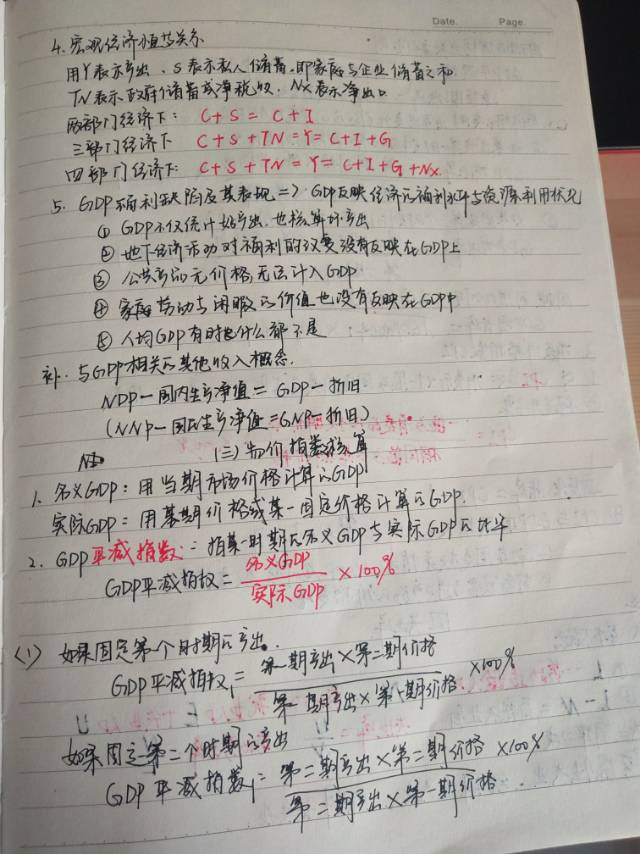 Date. Page.
4. 宏观经济恒等关系
用Y表示产出、S表示私人储蓄,即家庭与企业储蓄之和
TN表示政府储蓄或净税收,NX表示净出口
两部门经济下: C+S = C+I
三部门经济下 C+S+TN=Y=C+I+G
四部门经济下: C+S+TN=Y=C+I+G+Nx.
5. GDP福利缺陷及其表现=> GDP反映经济的福利水平与资源利用状况
① GDP不仅统计好产出,也核算坏产出
② 地下经济活动对福利的改变没有反映在GDP上
③ 公共产品无价格,无法计入GDP
④ 家庭劳动与闲暇的价值也没有反映在GDP中
⑤ 人均GDP有时也什么都不是
补. 与GDP相关的其他收入概念.
NDP—国内生产净值=GDP-折旧
(NNP-国民生产净值=GNP-折旧)
(三)物价指数核算
1. 名义GDP:用当期市场价格计算的GDP
实际GDP:用基期价格或某一固定价格计算的GDP.
2. GDP平减指数:指某一时期的名义GDP与实际GDP的比率
GDP平减指数=名义GDP/实际GDP×100%
(1) 如果固定第一个时期的产出.
GDP平减指数1=第一期产出×第二期价格/第一期产出×第一期价格×100%
如果固定第二个时期的产出
GDP平减指数1=第二期产出×第二期价格/第二期产出×第一期价格×100%